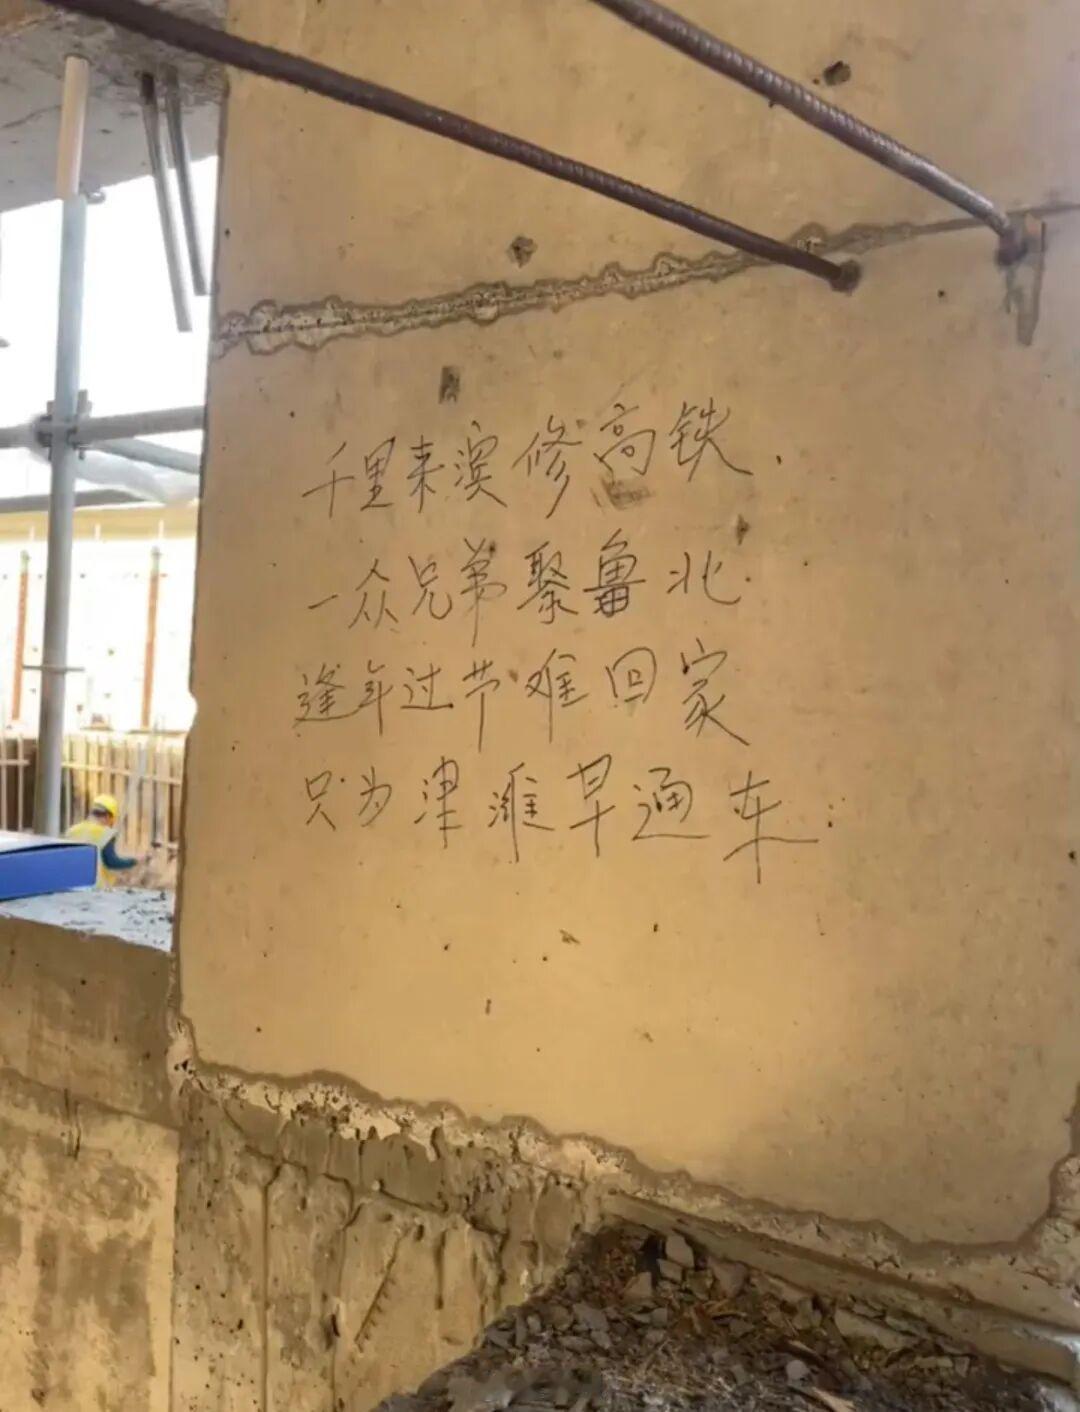 千里来滨修高铁.
一众兄弟聚鲁北.
逢年过节难回家
只为津潍早通车.